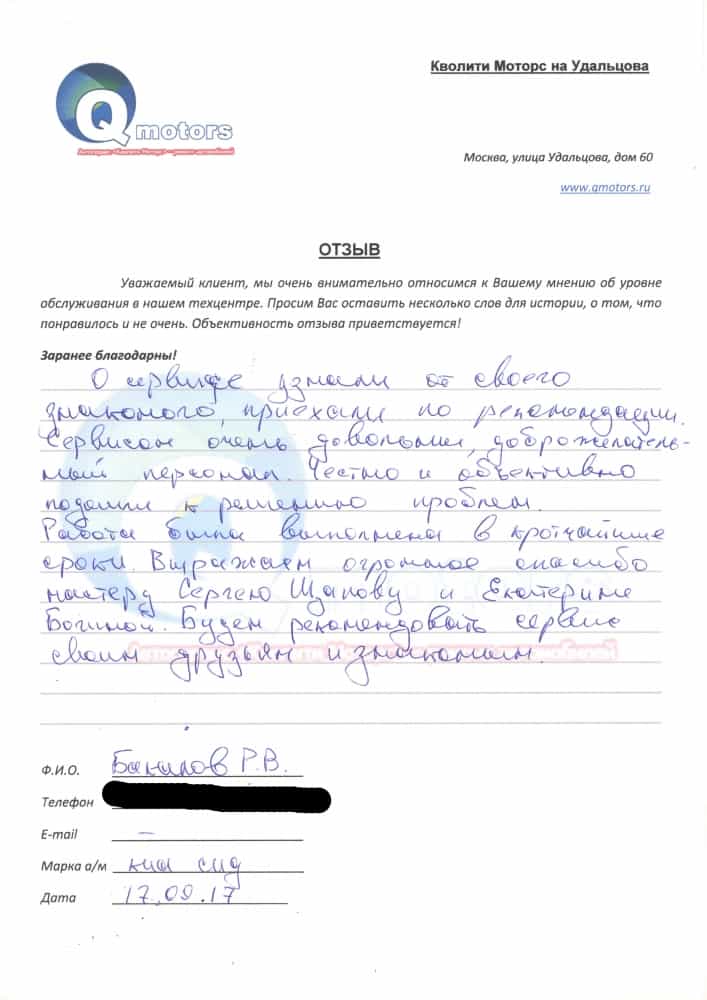 Q motors
Автосервис «Кволити Моторс» - сервис автомобилей
Кволити Моторс на Удальцова
Москва, улица Удальцова, дом 60
www.qmotors.ru
ОТЗЫВ
Уважаемый клиент, мы очень внимательно относимся к Вашему мнению об уровне
обслуживания в нашем техцентре. Просим Вас оставить несколько слов для истории, о том, что
понравилось и не очень. Объективность отзыва приветствуется!
Заранее благодарны!
О сервисе узнали от своего
знакомого, приехали по рекомендации.
Сервисом очень довольны, доброжелатель-
ный персонал. Честно и объективно
подошли к решению проблем.
Работа была выполнена в кротчайшие
сроки. Выражаем огромное спасибо
мастеру Сергею Щапову и Екатерине
Богиной. Будем рекомендовать сервис
своим друзьям и знакомым.
Ф.И.О. Р.В.
Телефон
E-mail –
Марка а/м киа сид
Дата 17.09.17